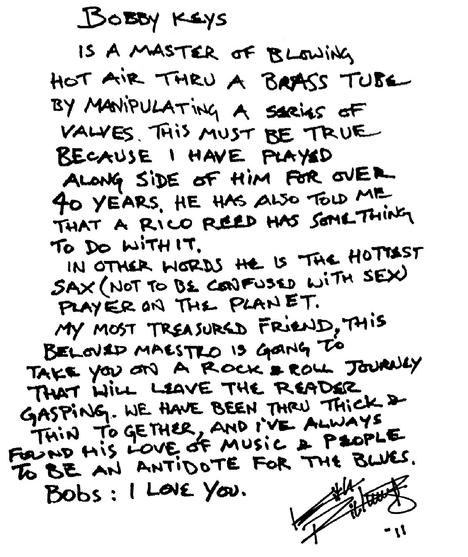 BOBBY KEYS
IS A MASTER OF BLOWING
HOT AIR THRU A BRASS TUBE
BY MANIPULATING A SERIES OF
VALVES. THIS MUST BE TRUE
BECAUSE I HAVE PLAYED
ALONG SIDE OF HIM FOR OVER
40 YEARS. HE HAS ALSO TOLD ME
THAT A RICO REED HAS SOMETHING
TO DO WITH IT.
IN OTHER WORDS HE IS THE HOTTEST
SAX (NOT TO BE CONFUSED WITH SEX)
PLAYER ON THE PLANET.
MY MOST TREASURED FRIEND, THIS
BELOVED MAESTRO IS GOING TO
TAKE YOU ON A ROCK & ROLL JOURNEY
THAT WILL LEAVE THE READER
GASPING. WE HAVE BEEN THRU THICK &
THIN TO GETHER, AND I'VE ALWAYS
FOUND HIS LOVE OF MUSIC & PEOPLE
TO BE AN ANTIDOTE FOR THE BLUES.
BOBS: I LOVE YOU.
-11